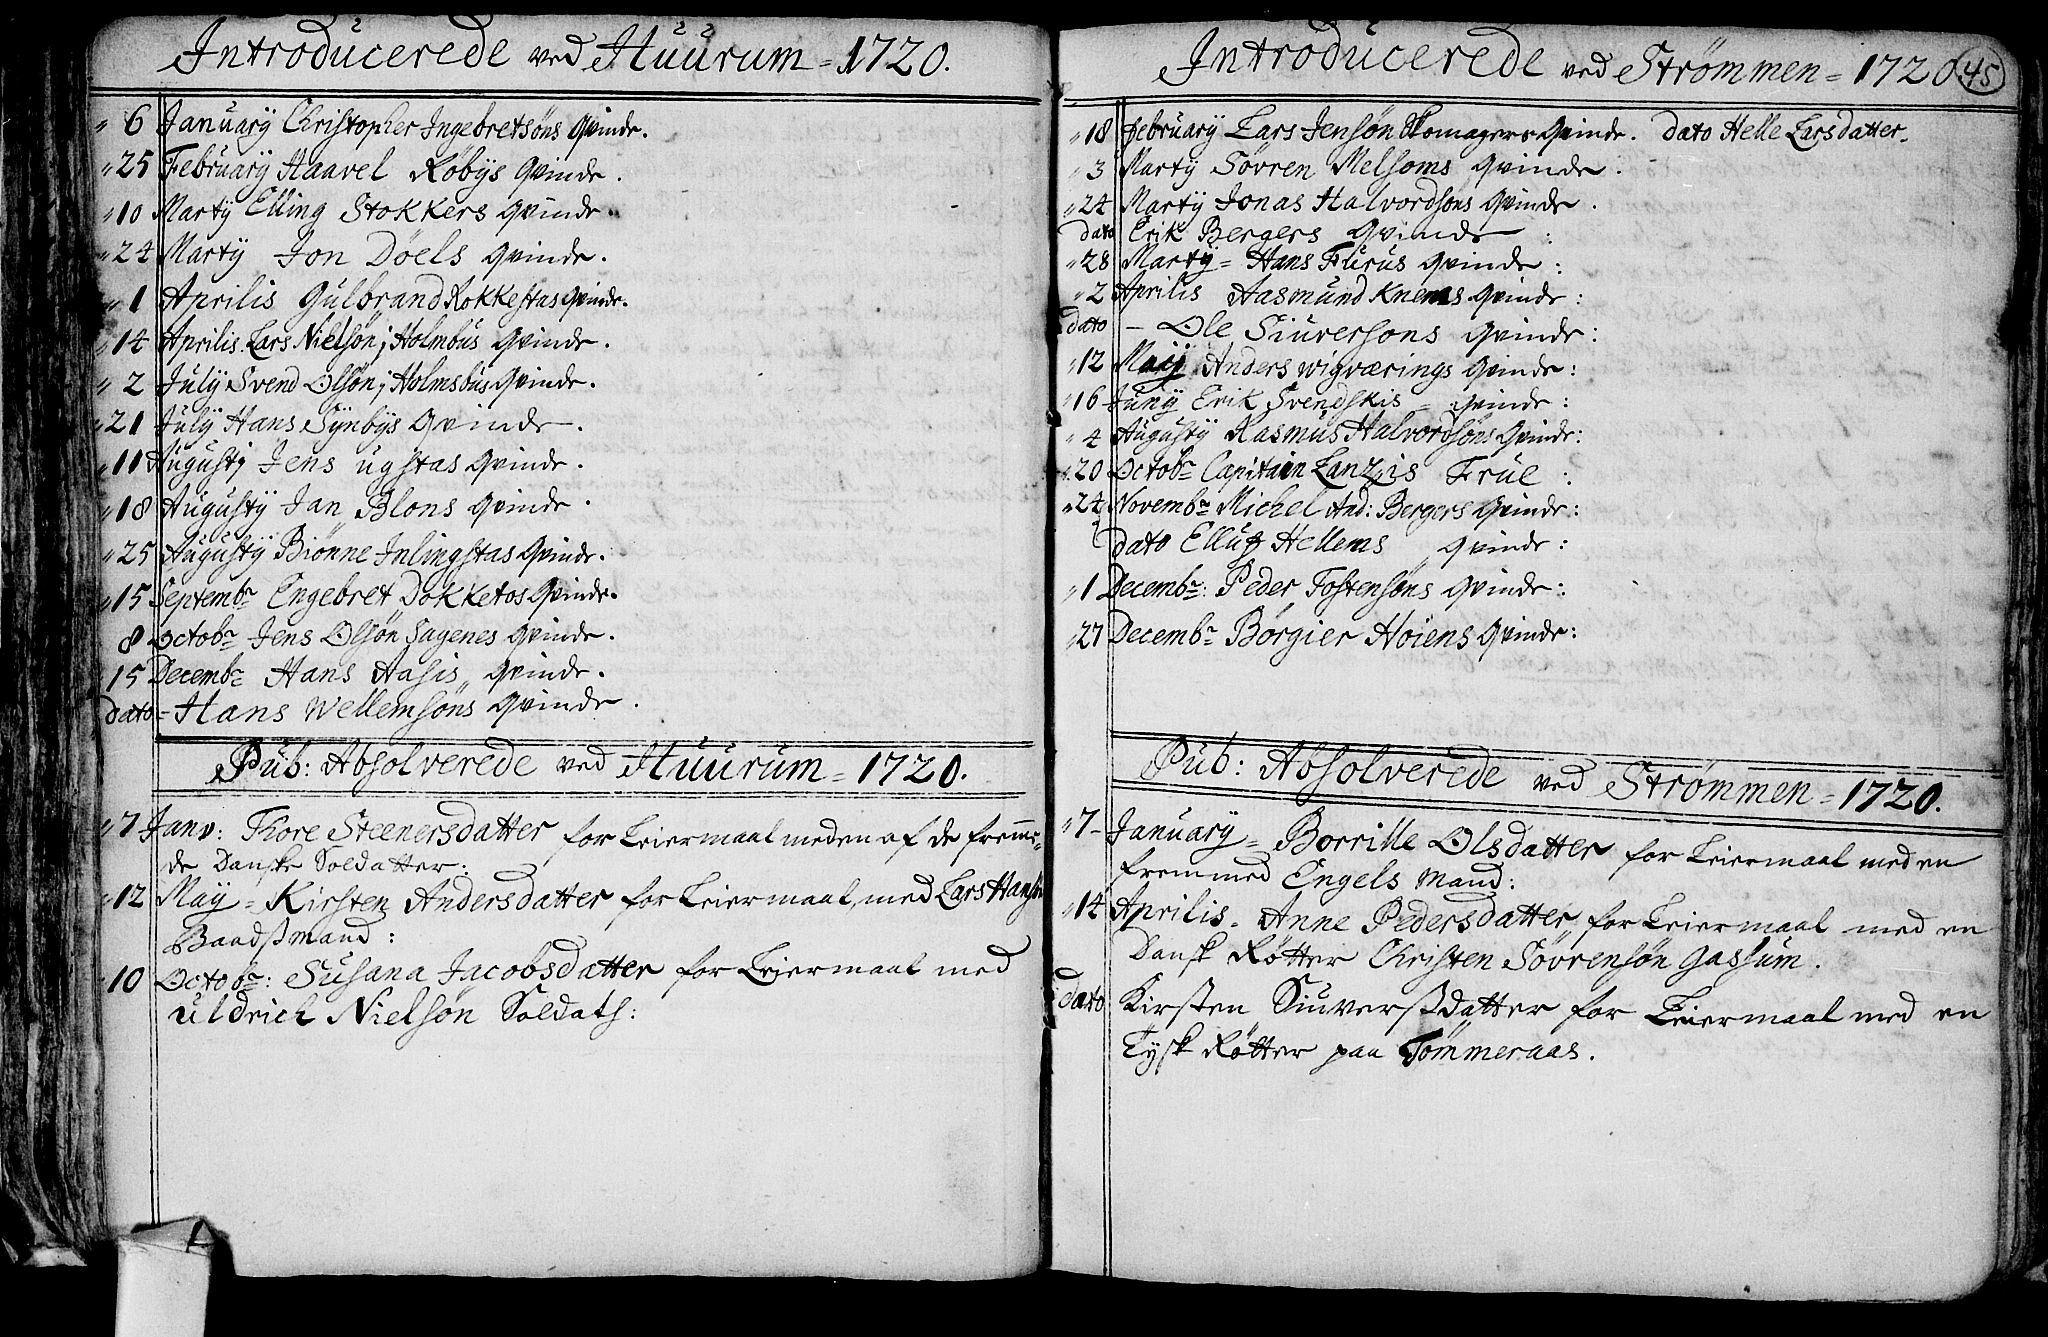 Introducerede ved Huurum = 1720.
" 6 January Christopher Ingebretsøns Qvinde.
" 25 February Haavel Røbÿs Qvinde.
" 10 Martÿ Elling Stokkers Qvinde.
" 24 Martÿ Jon Döels Qvinde.
" 1 Aprilis Gulbrand Rokkestas Qvinde.
" 14 Aprilis Lars Nielsøn i Holmbus Qvinde.
" 2 July Svend Olsøn i Holmsbus Qvinde.
" 21 July Hans Sÿnbÿs Qvinde.
" 11 Augusti Jens ugstas Qvinde.
" 18 Augustÿ Jan Blons Qvinde.
" 25 Augustÿ Biönne Inlingstas Qvinde.
" 15 Septembr Engebret Dokketos Qvinde.
8 Octobr Jens Olsøn Sagenes Qvinde.
15 Decembr Hans Aasis Qvinde.
dato = Hans Wellemsöns Qvinde.
Pub: Absolverede ved Huurum = 1720.
" 7 Janv: Thore Steenersdatter for Leiermaal med en af de fremme-
de Danske Soldatter:
" 12 Maÿ = Kirsten Andersdatter for Leiermaal, med Lars Hansøn
Baadsmand:
" 10 Octobr: Susana Jacobsdatter for Leiermaal med
uldrich Nielsøn Soldats:
Introducerede ved Strømmen = 1720 45
" 18 February Lars Jensøn Skomagers Qvinde. Dato Helle Larsdatter.
" 3 Martÿ Sövren Melsoms Qvinde.
" 24 Martÿ Jonas Halvordsøns Qvinde.
dato Erik Bergers Qvinde:
" 28 Martÿ = Hans Furus Qvinde:
" 2 Aprilis Aasmund Knems Qvinde:
dato - Ole Siuversons Qvinde:
" 12 Maÿ Anders wigværings Qvinde:
" 16 Junÿ Erik Svendskis = Qvinde:
" 4 Augustÿ Rasmus Halvordsøns Qvinde:
" 20 Octobr Capitain Lanzis Frue:
" 24 Novembr Michel And: Bergers Qvinde:
dato Elluf Hellems Qvinde:
" 1 Decembr: Peder Tostensøns Qvinde:
" 27 Decembr Børgier Höiens Qvinde:
Pub: Absolverede ved Strømmen = 1720.
" 7 - January = Borrille Olsdatter for Leiermaal med en
fremmed Engels Mand:
" 14 Aprilis = Anne Pedersdatter for Leiermaal med en
Dansk Røtter Christen Sövrensøn Gassum.
dato Kirsten Siuversdatter for Leiermaal med en
Tÿsk Røtter paa Tömmeraas.